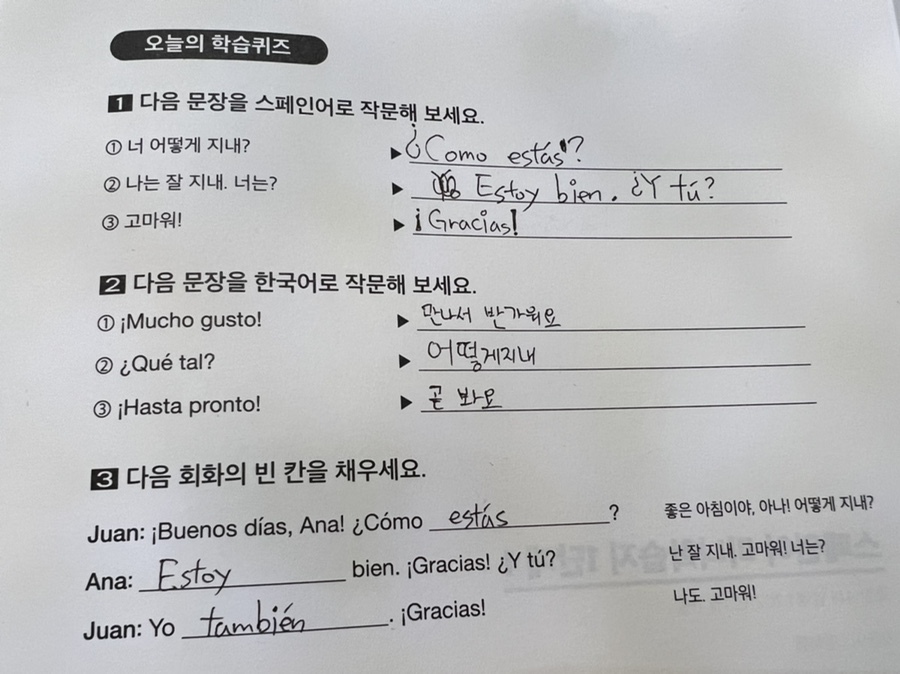 오늘의 학습퀴즈
1 다음 문장을 스페인어로 작문해 보세요.
① 너 어떻게 지내? ▶ ¿Como estás?
② 나는 잘 지내. 너는? ▶ Estoy bien. ¿Y tú?
③ 고마워! ▶ ¡Gracias!
2 다음 문장을 한국어로 작문해 보세요.
① ¡Mucho gusto! ▶ 만나서 반가워요
② ¿Qué tal? ▶ 어떻게지내
③ ¡Hasta pronto! ▶ 곧 봐요
3 다음 회화의 빈 칸을 채우세요.
Juan: ¡Buenos días, Ana! ¿Cómo estás ? 좋은 아침이야, 아나! 어떻게 지내?
Ana: Estoy bien. ¡Gracias! ¿Y tú? 난 잘 지내. 고마워! 너는?
Juan: Yo también . ¡Gracias! 나도. 고마워!